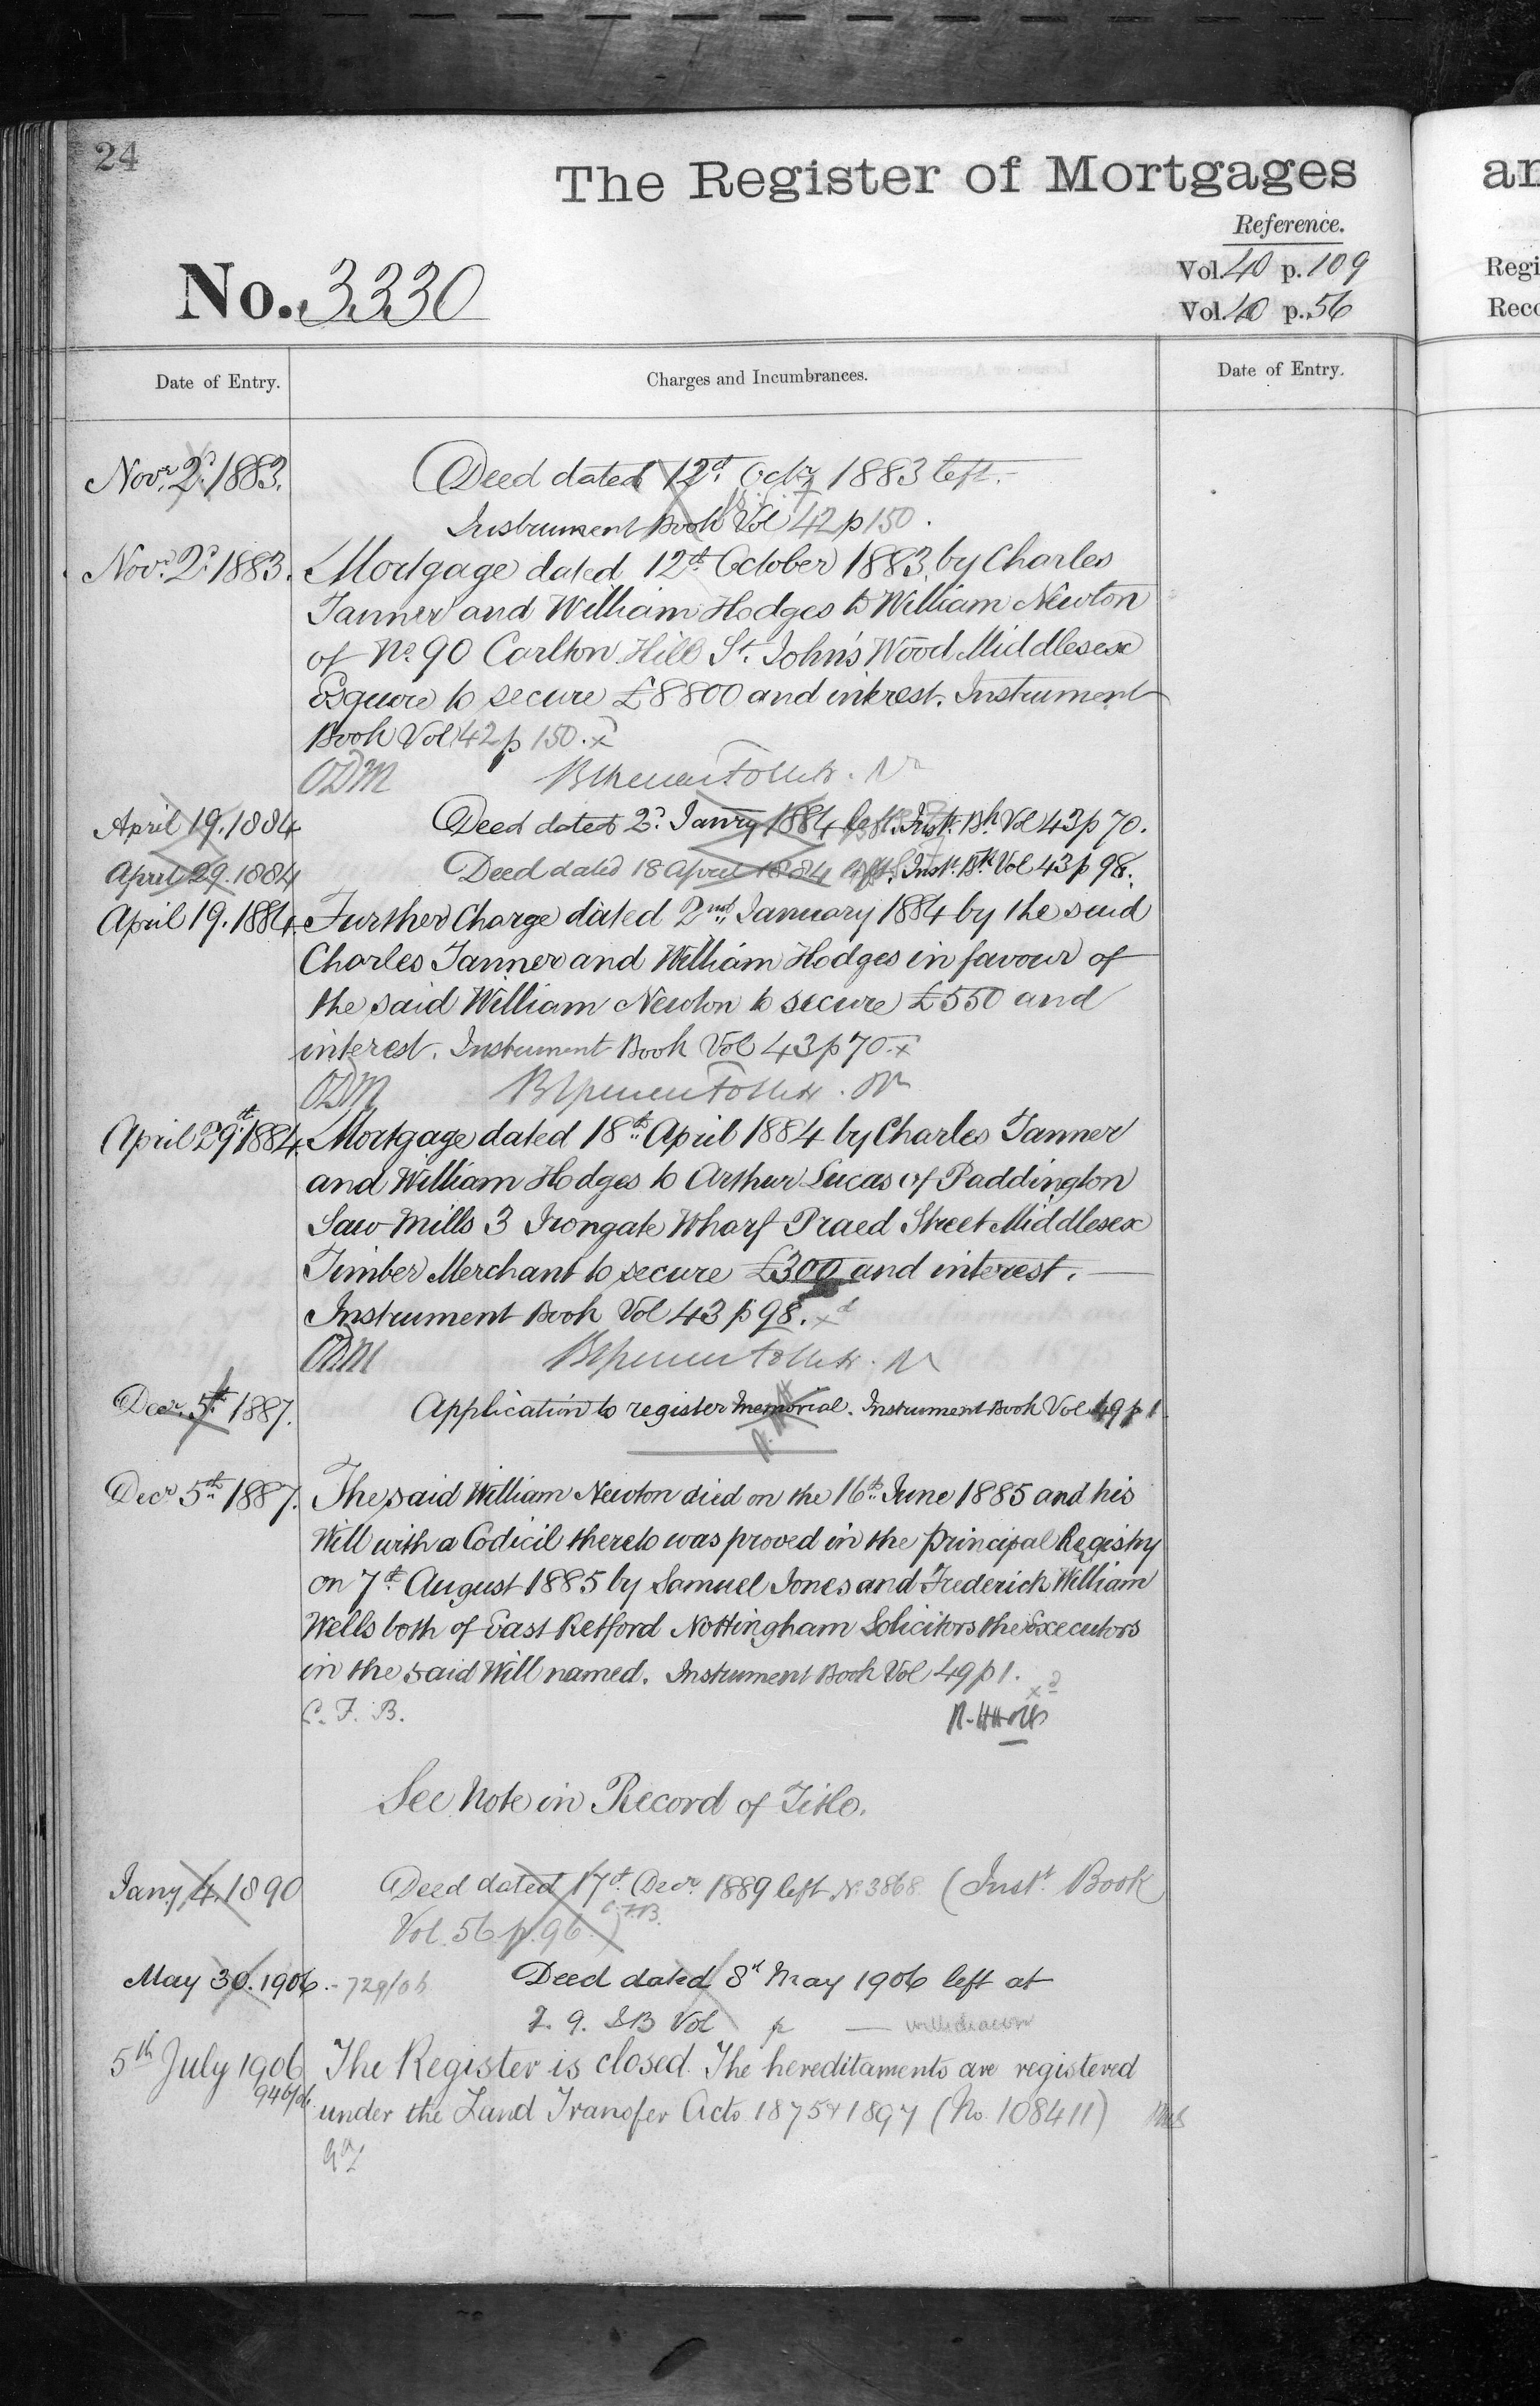 24
The Register of Mortgages
Reference.
Vol. 40 p. 109
Vol. 40 p. 56
No. 3330
Date of Entry.
Charges and Incumbrances.
Date of Entry.
Novr. 2d. 1883. Deed dated 12th Octr 1883 left.
Instrument Book Vol 42 p 150.
Novr. 2d. 1883. Mortgage dated 12th October 1883 by Charles
Tanner and William Hodges to William Newton
of No. 90 Carlton Hill St. John's Wood Middlesex
Esquire to secure £8800 and interest. Instrument
Book Vol 42 p 150. x
ODM
April 19. 1884 Deed dated 2d. Janry 1884 left. Inst. Bk. Vol 43 p 70.
April 29. 1884 Deed dated 18 April 1884 left. Inst. Bk. Vol 43 p 98.
April 19. 1884. Further Charge dated 2nd January 1884 by the said
Charles Tanner and William Hodges in favour of
the said William Newton to secure £550 and
interest. Instrument Book Vol 43 p 70. x
ODM
April 29th 1884. Mortgage dated 18th April 1884 by Charles Tanner
and William Hodges to Arthur Lucas of Paddington
Saw Mills 3 Irongate Wharf Praed Street Middlesex
Timber Merchant to secure £300 and interest.
Instrument Book Vol 43 p 98. xd
ODM
Decr. 5th 1887. Application to register memorial. Instrument Book Vol 49 p 1
Decr 5th 1887. The said William Newton died on the 16th June 1885 and his
Will with a Codicil thereto was proved in the Principal Registry
on 7th August 1885 by Samuel Jones and Frederick William
Wells both of East Retford Nottingham Solicitors the Executors
in the said Will named. Instrument Book Vol 49 p 1. xd
C. F. B.
See Note in Record of Title.
Jany 4. 1890 Deed dated 17th Decr. 1889 left No. 3868 (Inst. Book
Vol. 56 p. 96.) C.F.B.
May 30. 1906. - 729/06 Deed dated 8th May 1906 left at
2. 9. IB Vol p —
5th July 1906 The Register is closed. The hereditaments are registered
946/06. under the Land Transfer Acts 1875 & 1897 (No. 108411)
an
Regi
Reco